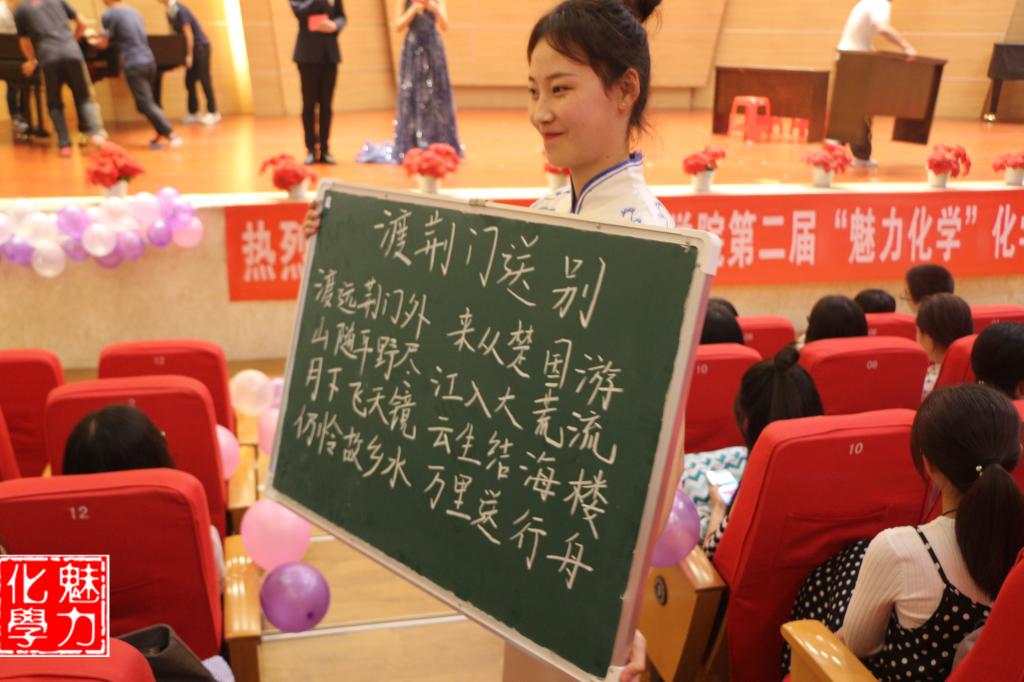 渡荆门送别
渡远荆门外 来从楚国游
山随平野尽 江入大荒流
月下飞天镜 云生结海楼
仍怜故乡水 万里送行舟
热烈
学院第二届“魅力化学”化学
12
12
10
08
10
魅力
化學